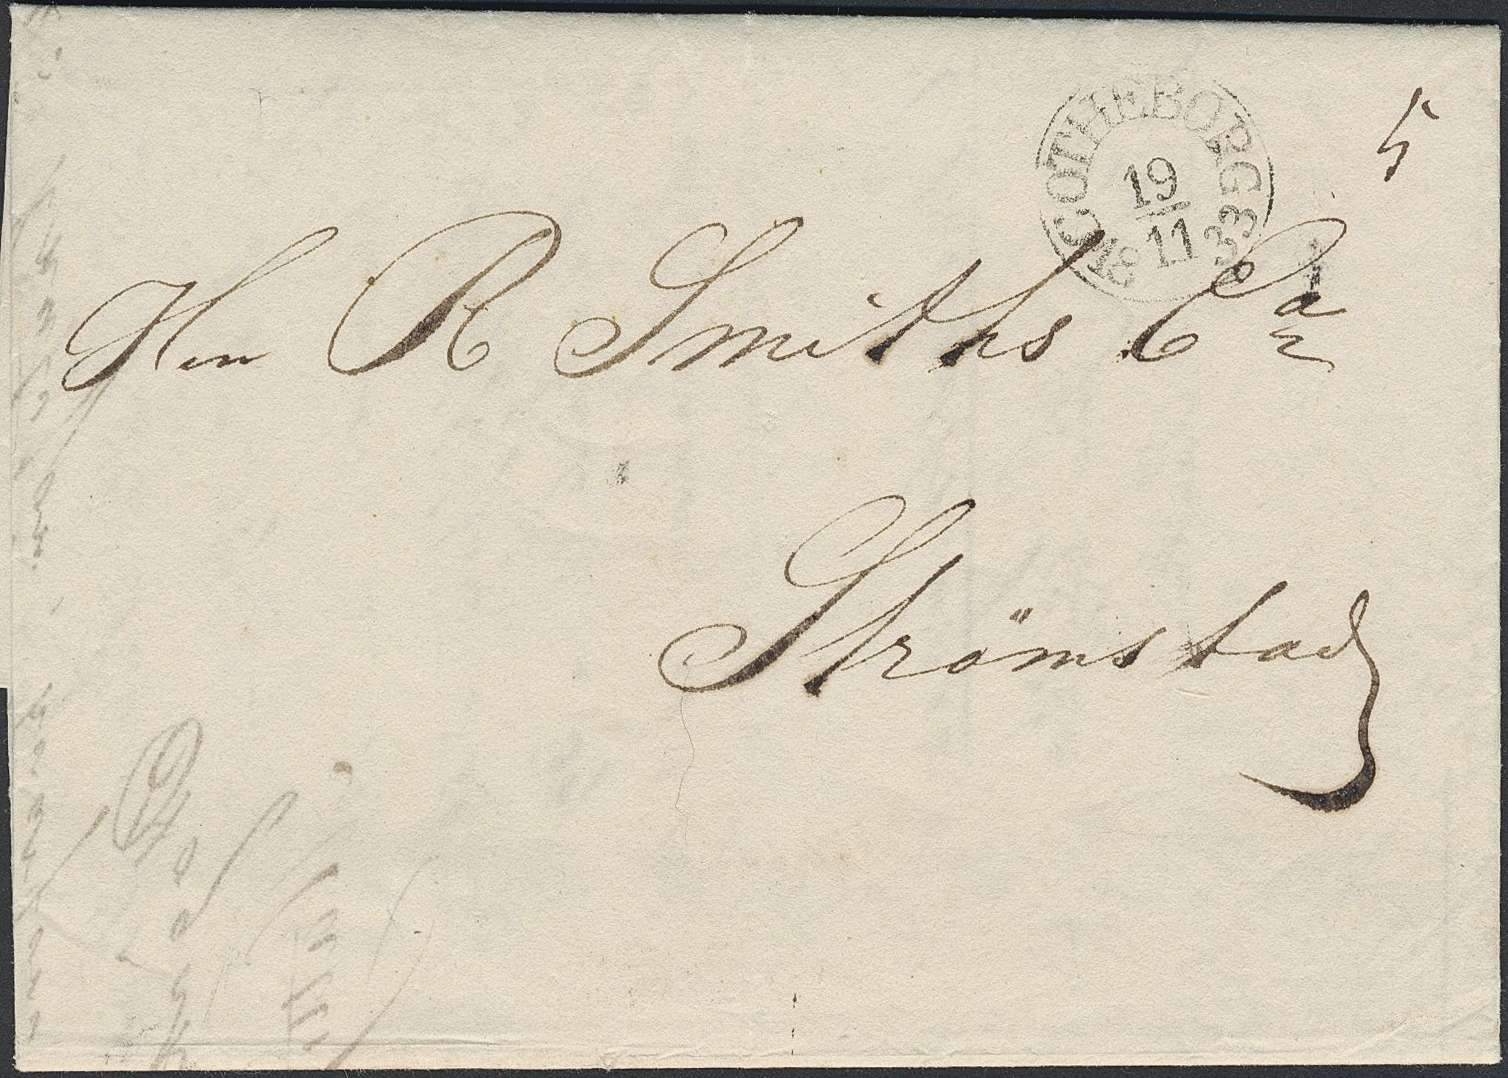 GÖTHEBORG
19
11
18 33
5
Herr R Smiths Ca
Strömstad